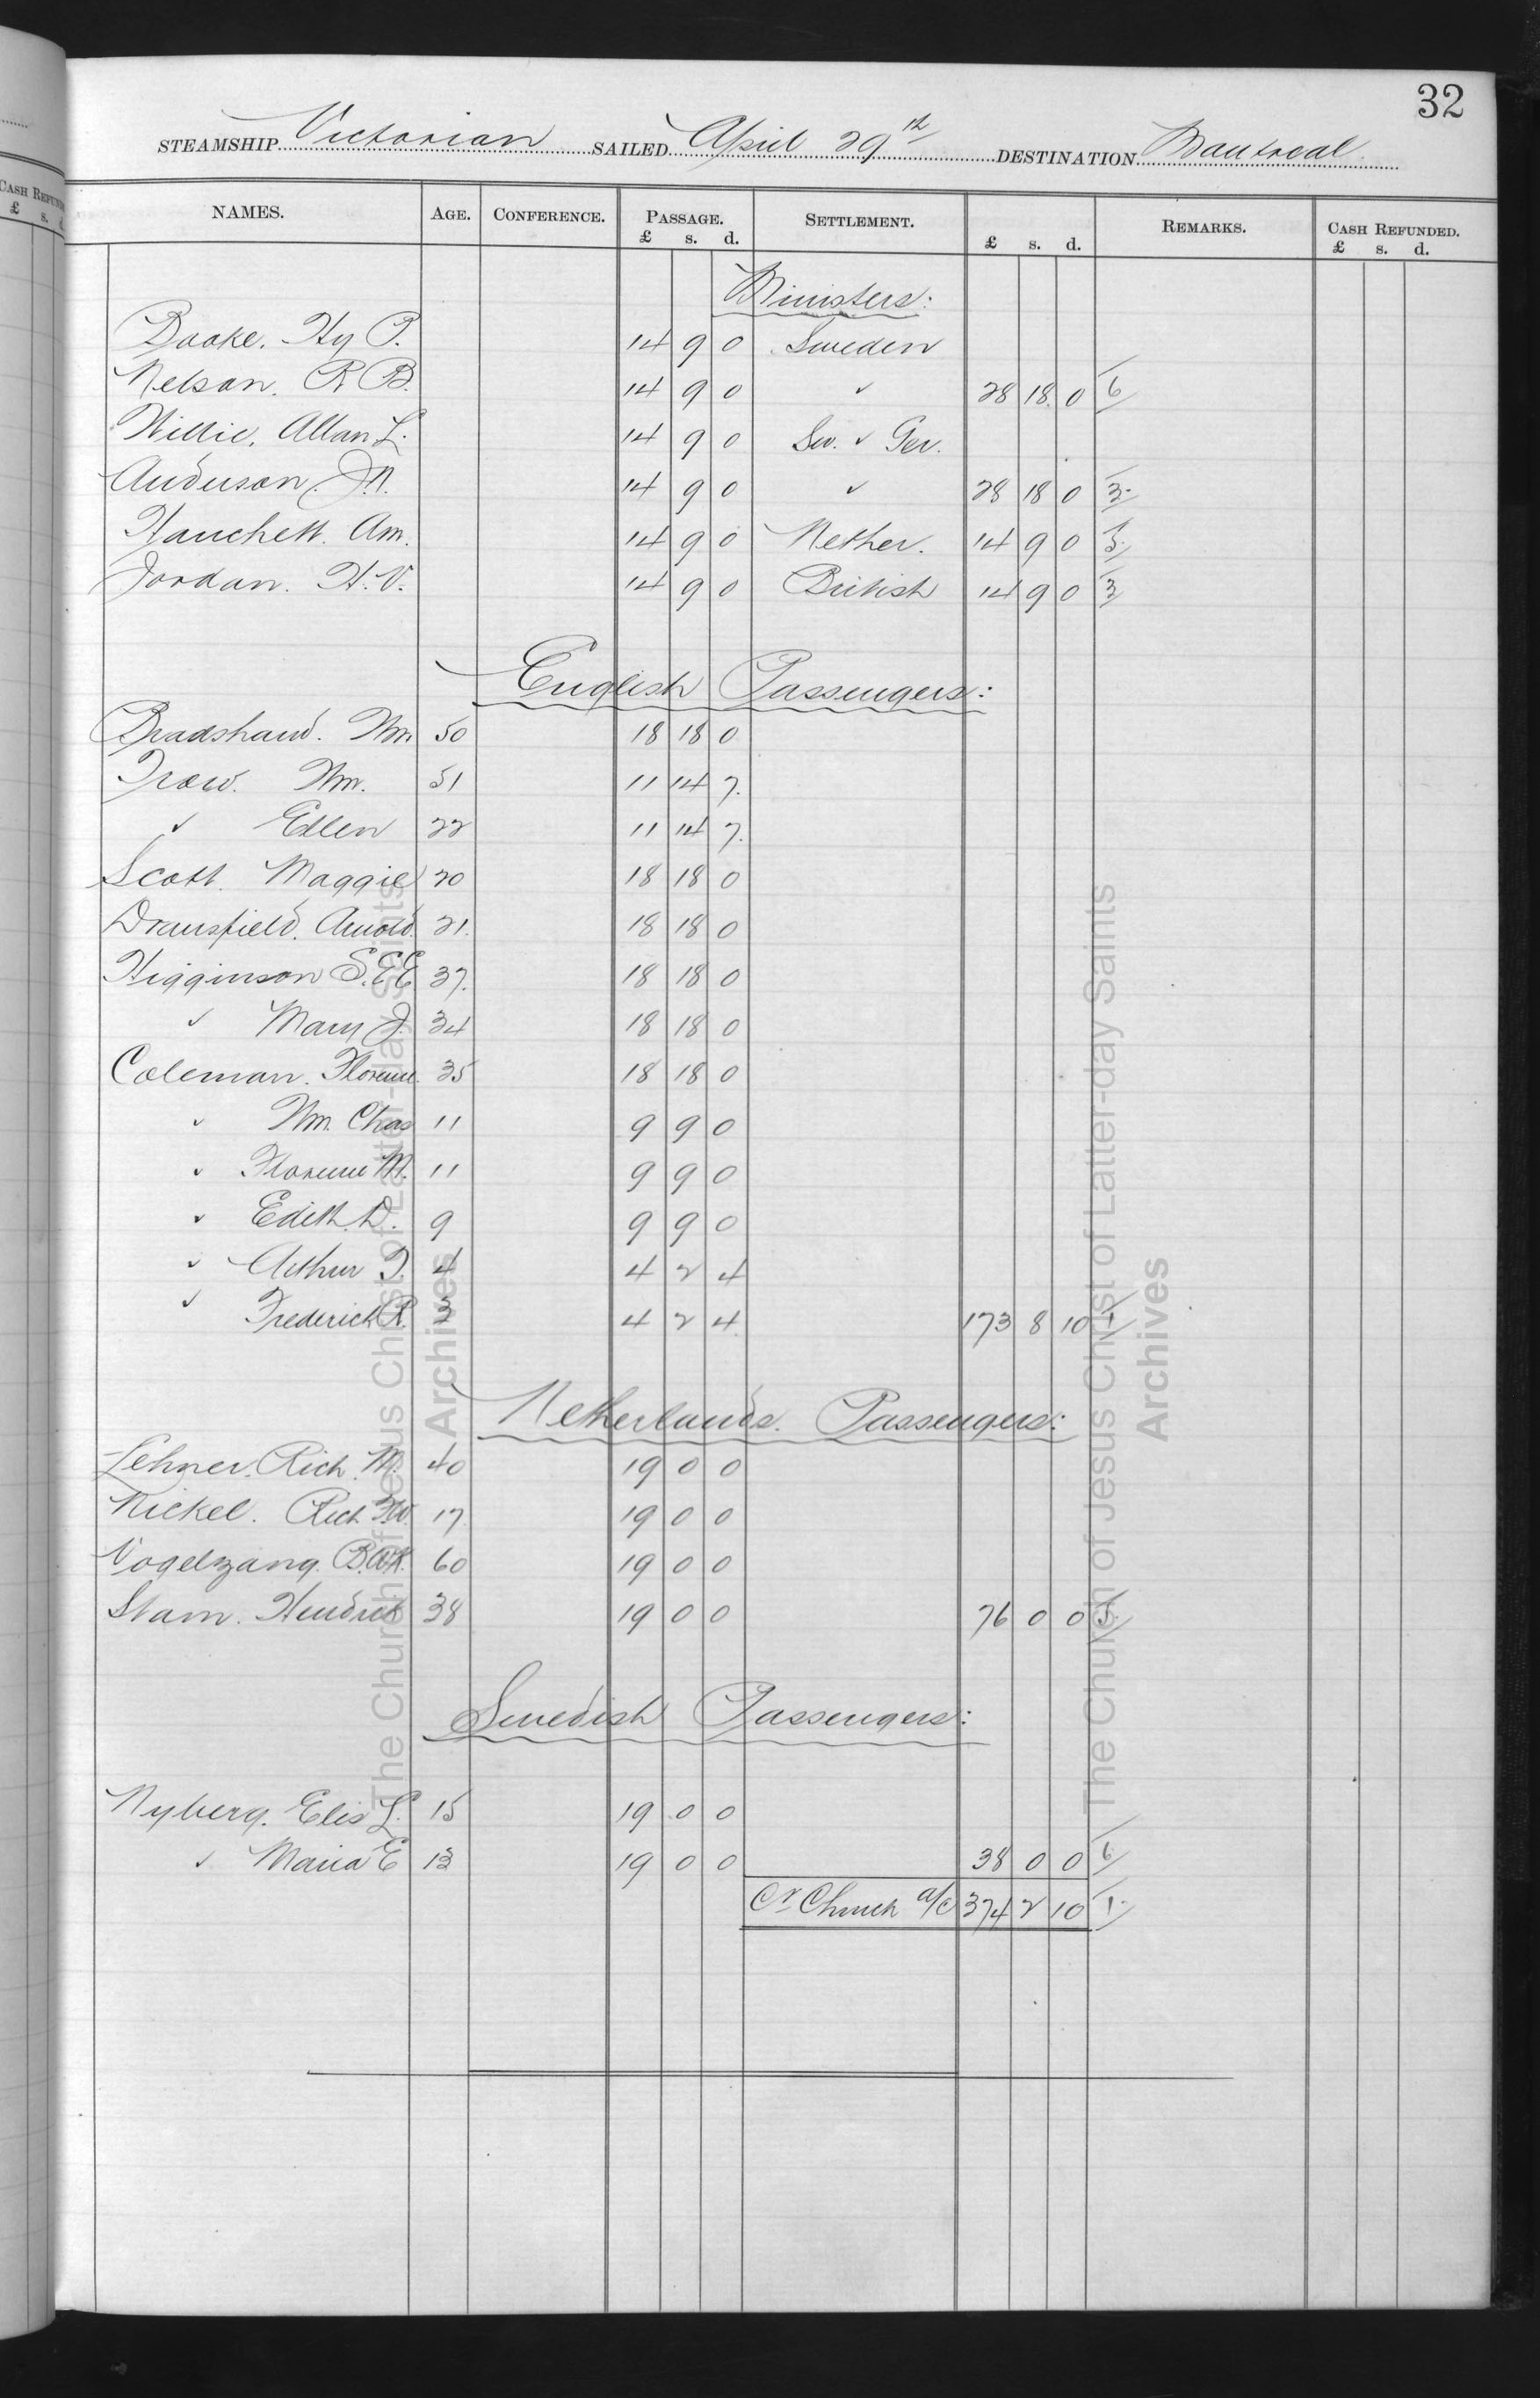 32
STEAMSHIP Victorian SAILED April 29th DESTINATION Montreal
CASH REFUND
£ s. d.
NAMES. AGE. CONFERENCE. PASSAGE. £ s. d. SETTLEMENT. £ s. d. REMARKS. CASH REFUNDED. £ s. d.
Ministers:
Booke. Hy P. 14 9 0 Sweden
Nelson. R B. 14 9 0 " 28 18 0 6/
Willie. Allan L. 14 9 0 Sw. & Ger.
Anderson. J.N. 14 9 0 " 28 18 0 3/
Hanchett. Am. 14 9 0 Nether. 14 9 0 5/
Jordan. H.V. 14 9 0 British 14 9 0 3/
English Passengers:
Bradshaw. Wm. 50 18 18 0
Trow. Wm. 51 11 14 7.
" Ellen 22 11 14 7.
Scott. Maggie 20 18 18 0
Dransfield. Arnold. 21. 18 18 0
Higginson S.E.E 37. 18 18 0
" Mary J. 34 18 18 0
Coleman. Florence. 35 18 18 0
" Wm. Chas 11 9 9 0
" Florence M. 11 9 9 0
" Edith. D. 9 9 9 0
" Arthur T. 4 4 2 4
" Frederick R. 3 4 2 4 173 8 10 1/
Netherlands. Passengers:
Lehner. Rich. M. 40 19 0 0
Nickel. Rich F.W. 17. 19 0 0
Vogelzang. 60 19 0 0
Stam. Hendrick 38 19 0 0 76 0 0 5/
Swedish Passengers:
Nyberg. Elis L. 15 19 0 0
" Maria E 13 19 0 0 38 0 0 6/
Cr Church a/c 374 2 10 1/
The Church of Jesus Christ of Latter-day Saints
Archives
The Church of Jesus Christ of Latter-day Saints
Archives